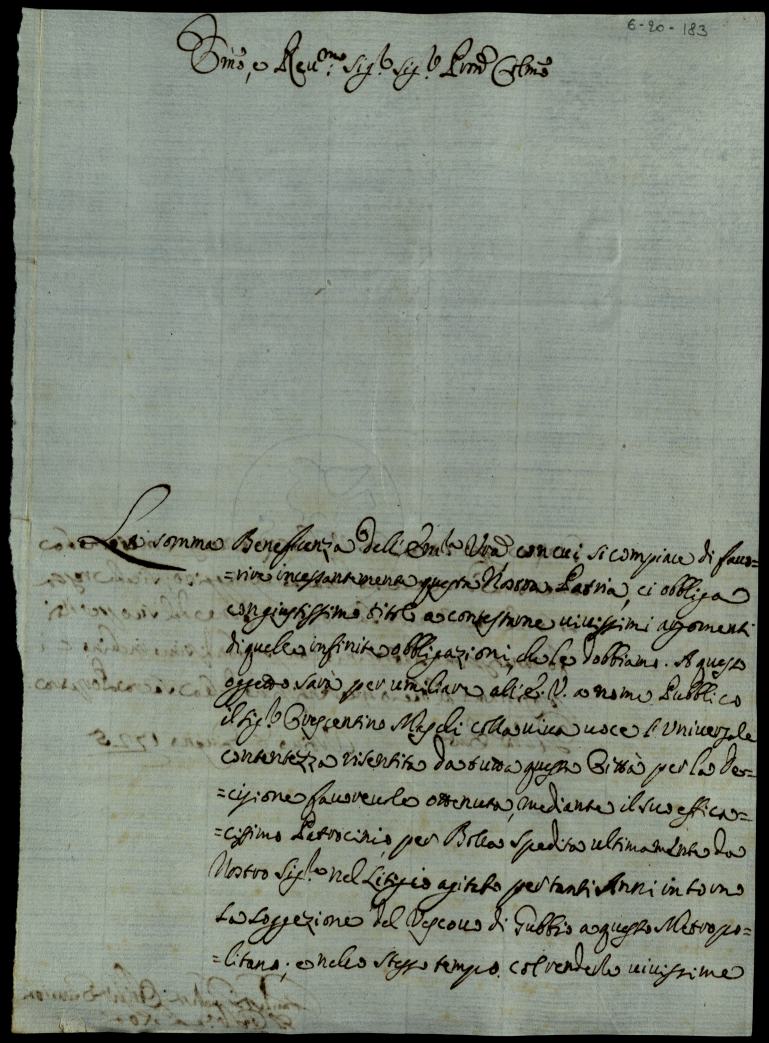 6-20-183
Emo, e Reu.mo Sig.r Sig.r Pron Colmo
La somma Beneficenza dell' Em.a Vra con cui si compiace di fauo=
=rire incessantemente questa Nostra Patria, ci obbliga
con giustissimo titolo a contestarne uiuissimi argomenti
di quelle infinite obbligazioni che le dobbiamo. A questo
oggetto sarà per umiliare all' E. V. a nome Pubblico
il Sig.r Crescentino Magoli colla uiua uoce l'Universale
contentezza risentita da tutta questa Città per la De=
=cisione fauoreuole ottenuta, mediante il suo effica=
=cissimo Patrocinio, per Bolla spedita ultimamente da
Nostro Sig.re nel Litigio agitato per tanti Anni intorno
la soggezione del Vescouo di Gubbio a questo Metropo=
=litano; e nello stesso tempo col renderle uiuissime